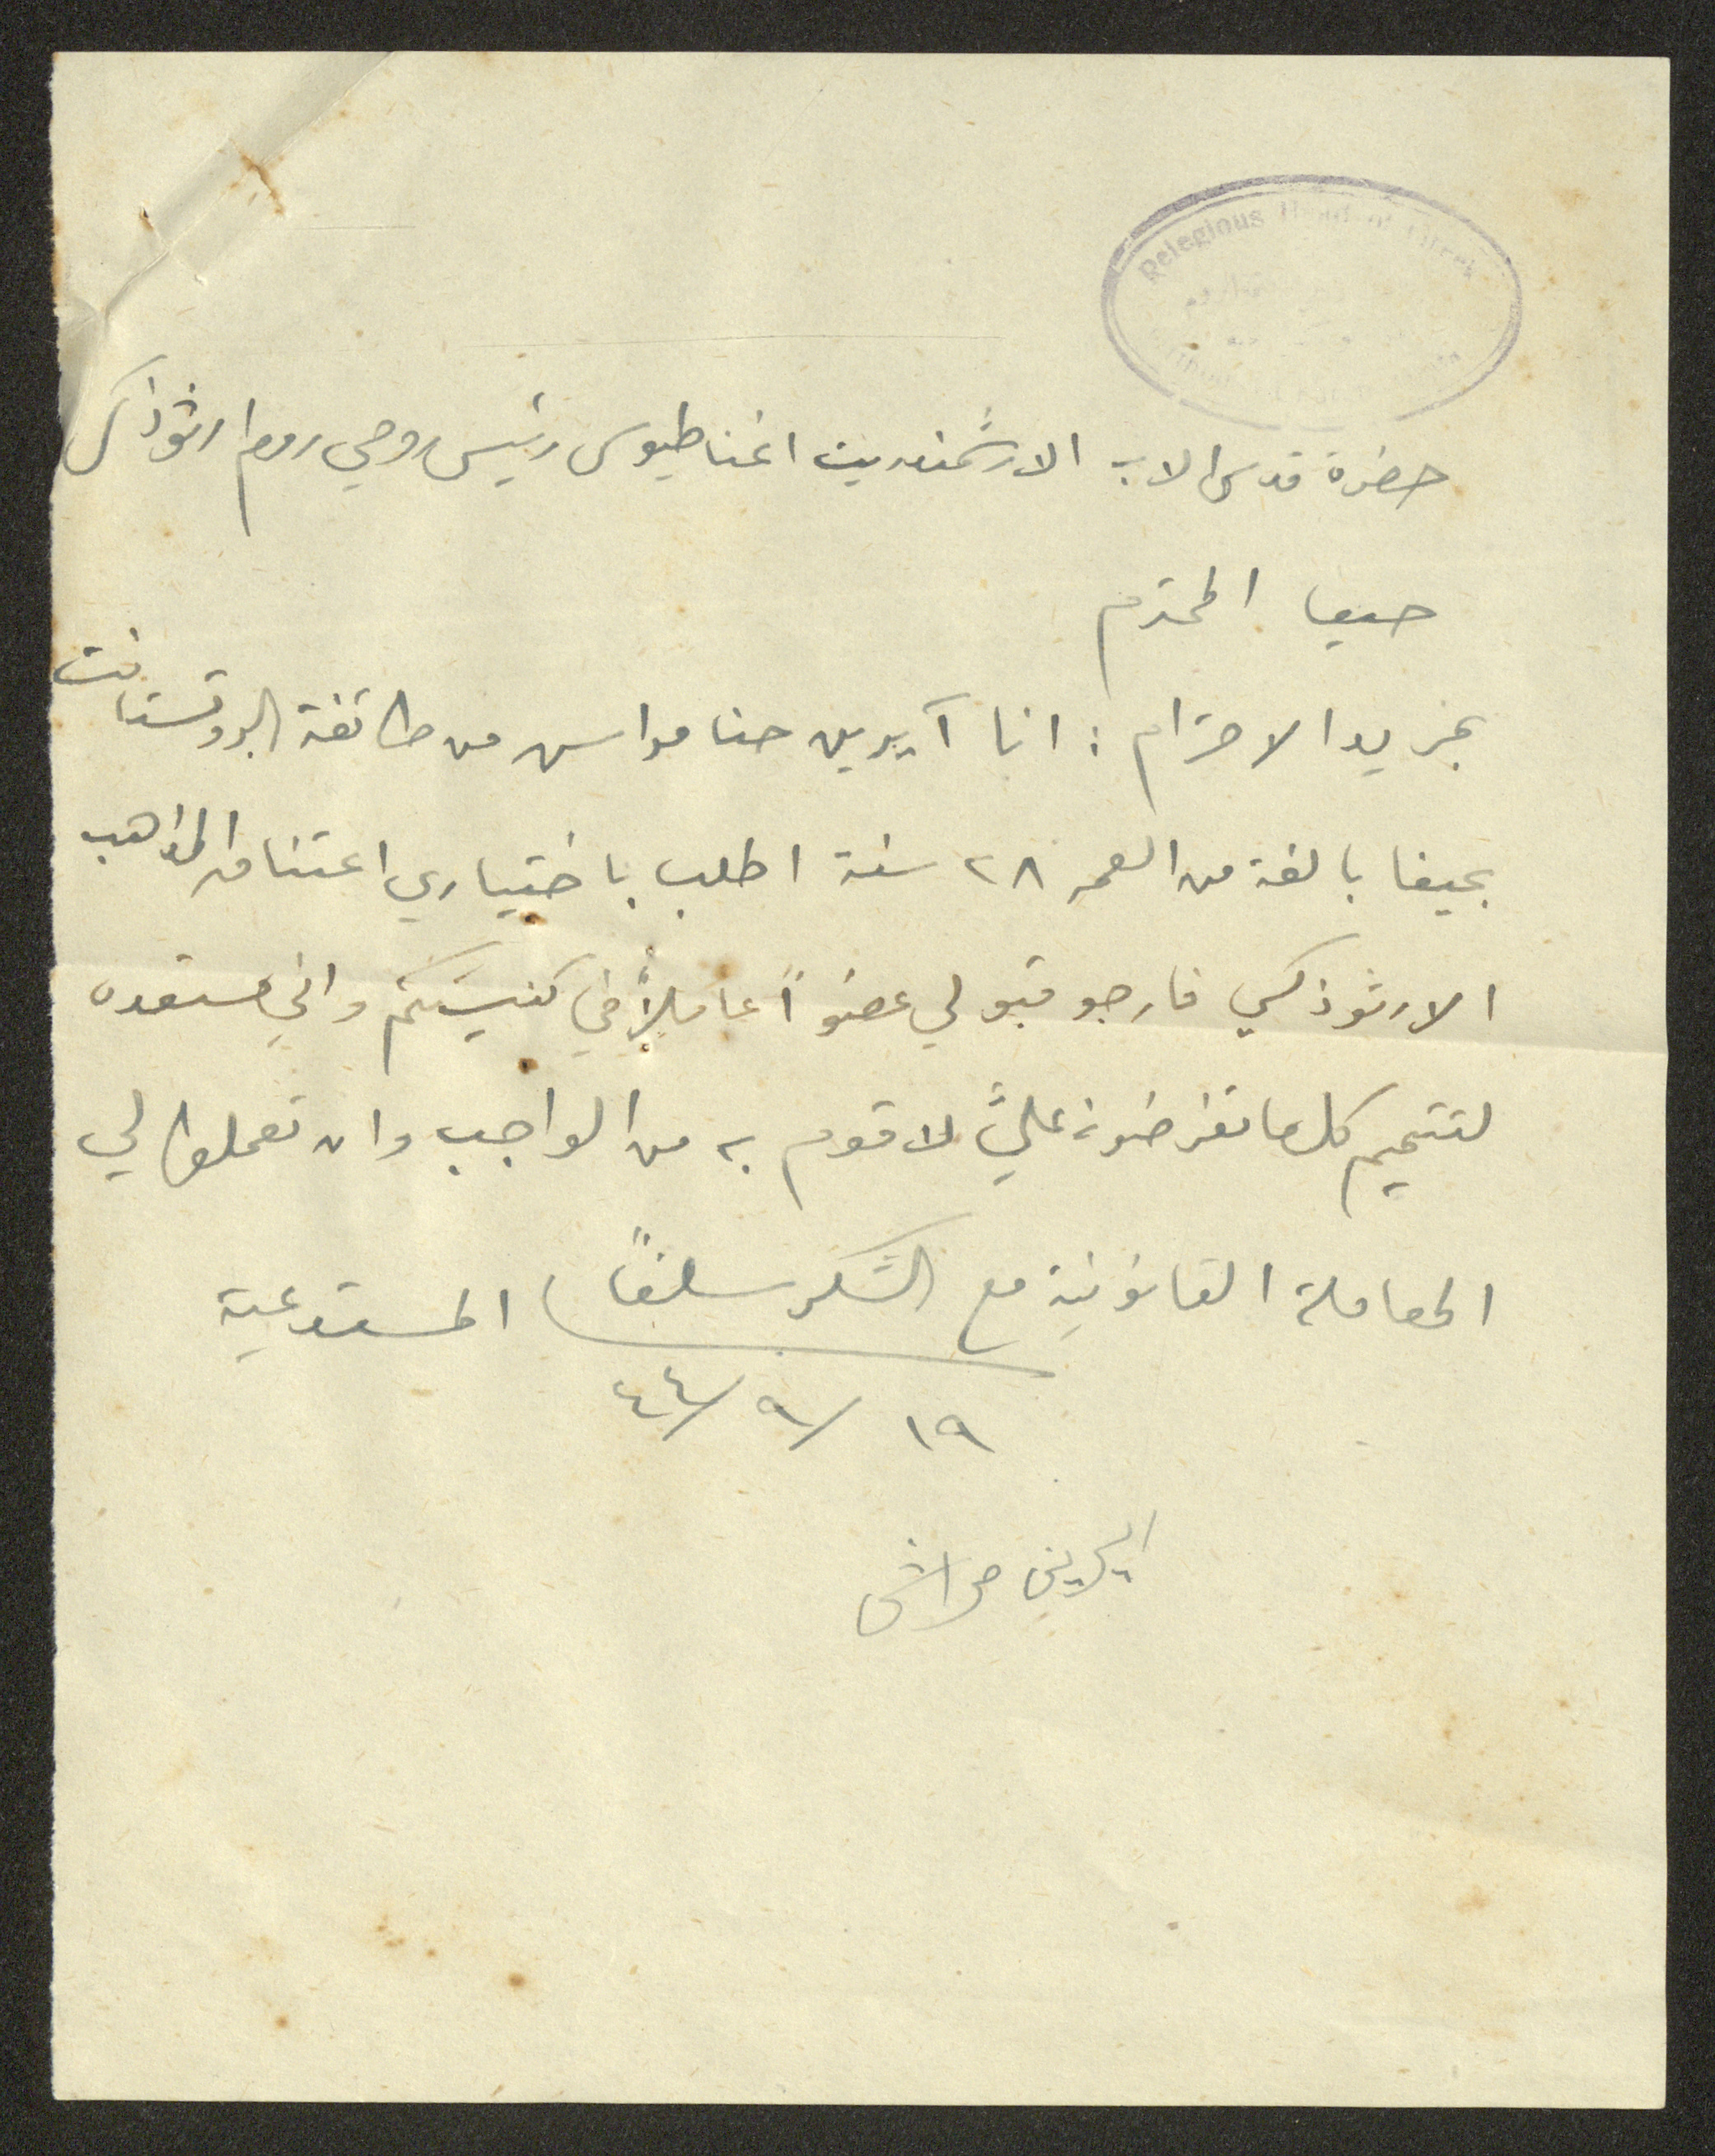 Relegious Head of Greek
حضرة قدس الاب الارشمندريت اغناطيوس رئيس روحي روم ارثوذكس
حيفا المحترم
بمزيد الاحترام : انا آيرين حنا مراش من طائفة البروتستانت
بحيفا بالغة من العمر ٢٨ سنة اطلب باختياري اعتناق المذاهب
الارثوذكسي فارجو قبولي عضواً عاملاً في كنيستكم واني مستعده
لتتميم كل ما تفرضونه عليّ لاقوم به من الواجب وان تعملوا لي
المعاملة القانونية مع الشكر سلفاً المستدعية
١٩ / ٩ / ٤٤
ايرين مراش